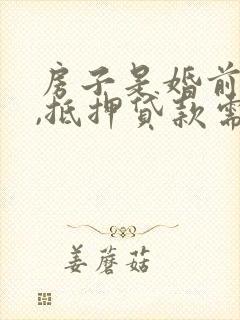 房子是婚前
,抵押贷款需
姜蘑菇